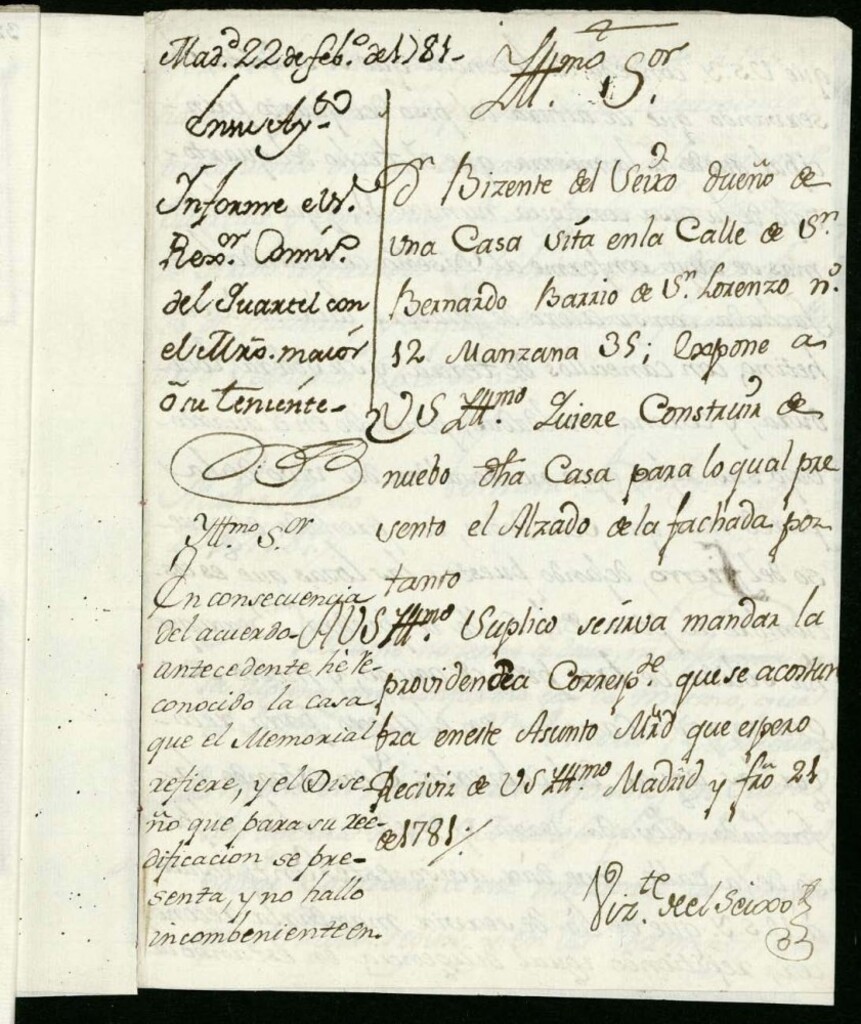 Mad.d 22 de feb.o de 1781.
En su Ay.to
Informe el S.r
Rex.or Comis.o
del Quartel con
el Mro. maior
ò su teniente
Yll.mo S.or
En consecuencia
del acuerdo
antecedente hè re-
conocido la casa
que el Memorial
refiere, y el Dise-
ño que para su ree-
dificacion se pre-
senta, y no hallo
incombeniente en.
Yll.mo S.or
Dn Bizente del Seixo dueño de
una Casa sita en la Calle de Sn.
Bernardo Barrio de Sn. Lorenzo n.o
12 Manzana 35; Expone a
VS Yll.mo Quiere Construir de
nuebo dha Casa para lo qual pre
sento el Alzado de la fachada por
tanto
A VS Yll.mo Suplico se sirva mandar la
providencia Corresp.te que se acostum
bra en este Asunto Mrd que espero
Recivir de VS Yll.mo Madrid y fro 21
de 1781
Viz.te del Seixo